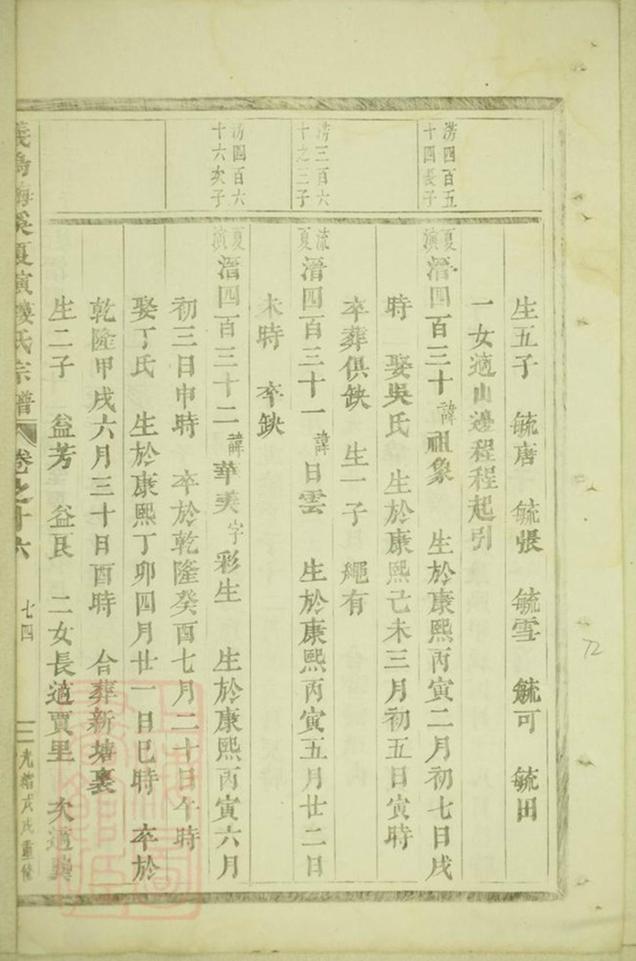 生五子 毓唐 毓張 毓雪 毓可 毓田
一女適山邊程程起引
滂四百五十四長子
夏演 溍四百三十 諱祖象 生於康熙丙寅二月初七日戌
時 娶吳氏 生於康熙己未三月初五日寅時
卒葬俱缺 生一子 繩有
滂三百六十之三子
流夏 溍四百三十一 諱日雲 生於康熙丙寅五月廿二日
未時 卒缺
滂四百六十六次子
夏演 溍四百三十二 諱華美 字彩生 生於康熙丙寅六月
初三日申時 卒於乾隆癸酉七月二十日午時
娶丁氏 生於康熙丁卯四月廿一日巳時 卒於
乾隆甲戌六月三十日酉時 合葬新塘裏
生二子 益芳 益艮 二女長適賈里 次適
義烏海溪夏演樓氏宗譜 卷之十六 七四 光緒戊戌重修
72